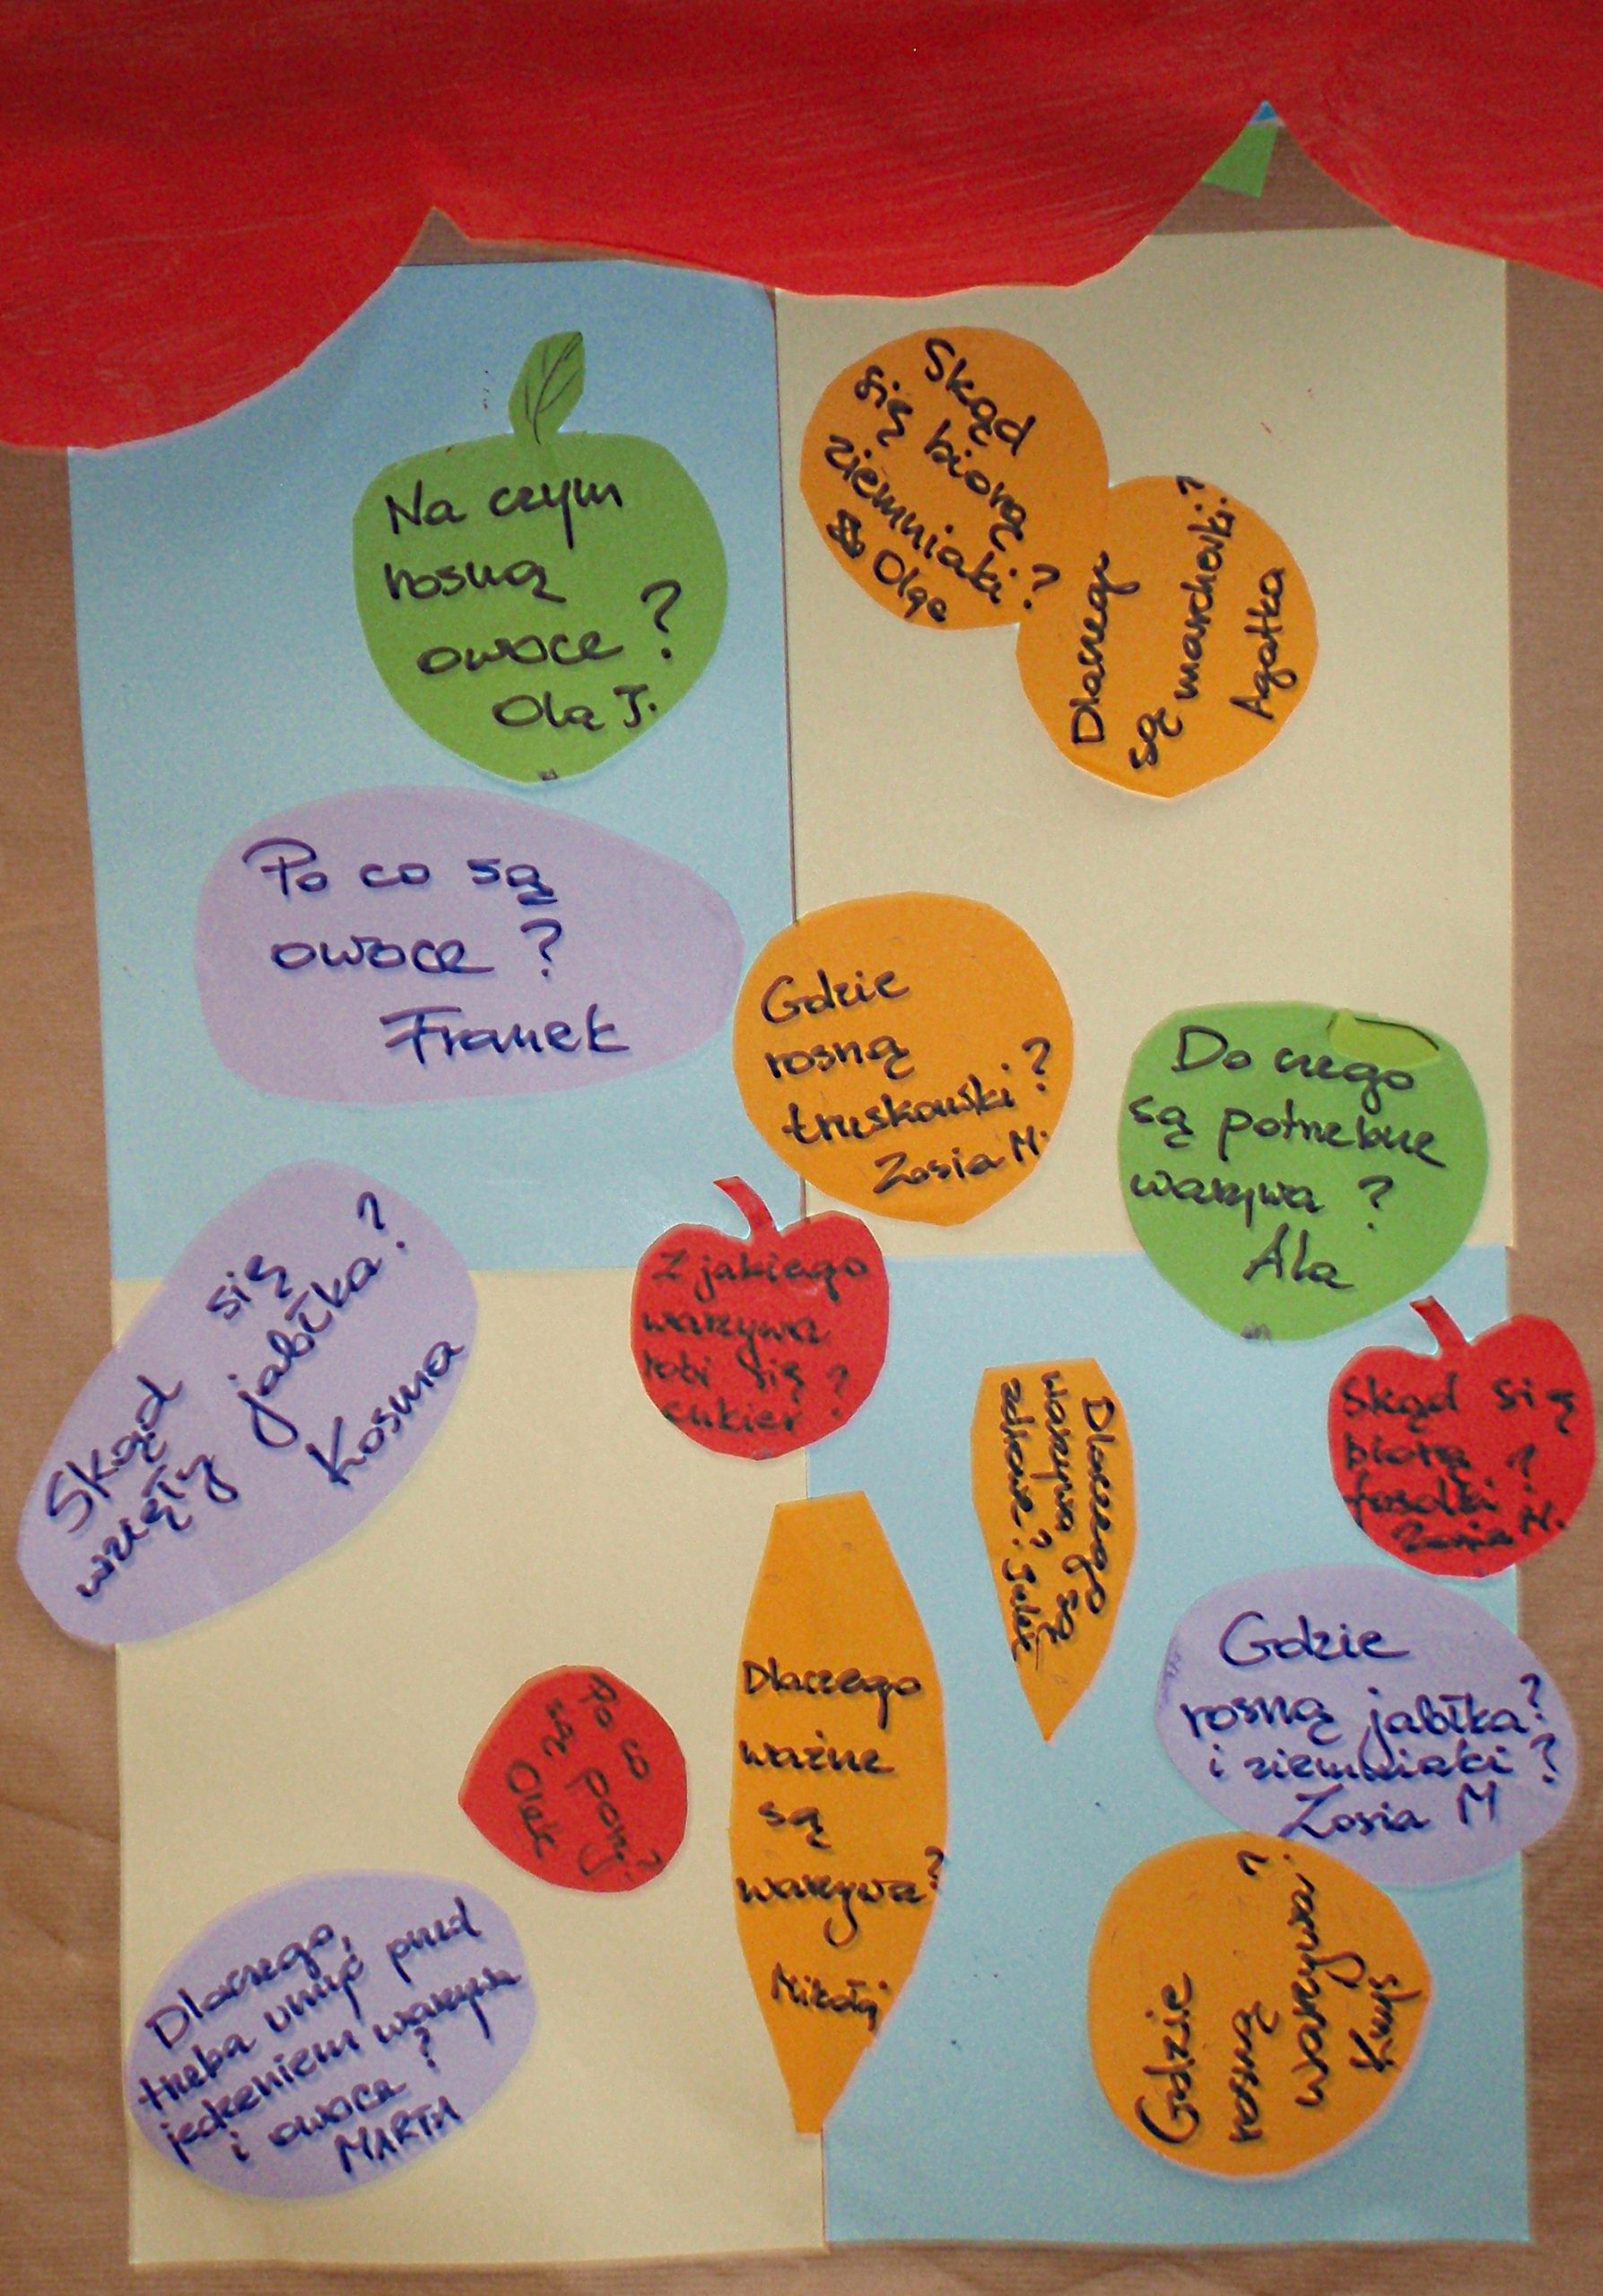 Na czym
rosną
owoce ?
Ola J.
Skąd
się biorą
ziemniaki ?
Olga
Dlaczego
są marchewki?
Agatka
Po co są
owoce ?
Franek
Gdzie
rosną
truskawki ?
Zosia M.
Do czego
są potrzebne
warzywa ?
Ala
Skąd się
wzięły jabłka?
Kosma
Z jakiego
warzywa
robi się
cukier ?
Dlaczego
warzywa są
zdrowe ?
Skąd się
biorą
fasolki ?
Zosia M.
Dlaczego
ważne
są
warzywa?
Mikołaj
Gdzie
rosną jabłka?
i ziemniaki ?
Zosia M
Po co
są pory?
Olek
Dlaczego,
trzeba umyć przed
jedzeniem warzywa
i owoce ?
MARTA
Gdzie
rosną
warzywa?